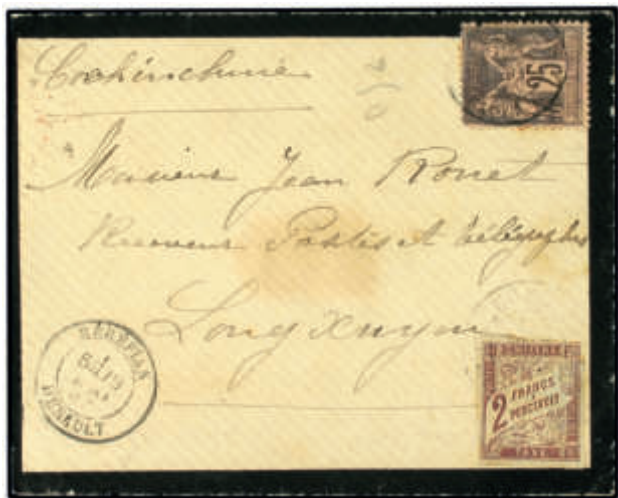 Cochinchine
25
Monsieur Jean Rouet
Receveur Postes et télégraphes
Longxuyen
HÉRAULT
2 FRANCS
À PERCEVOIR
TAXE